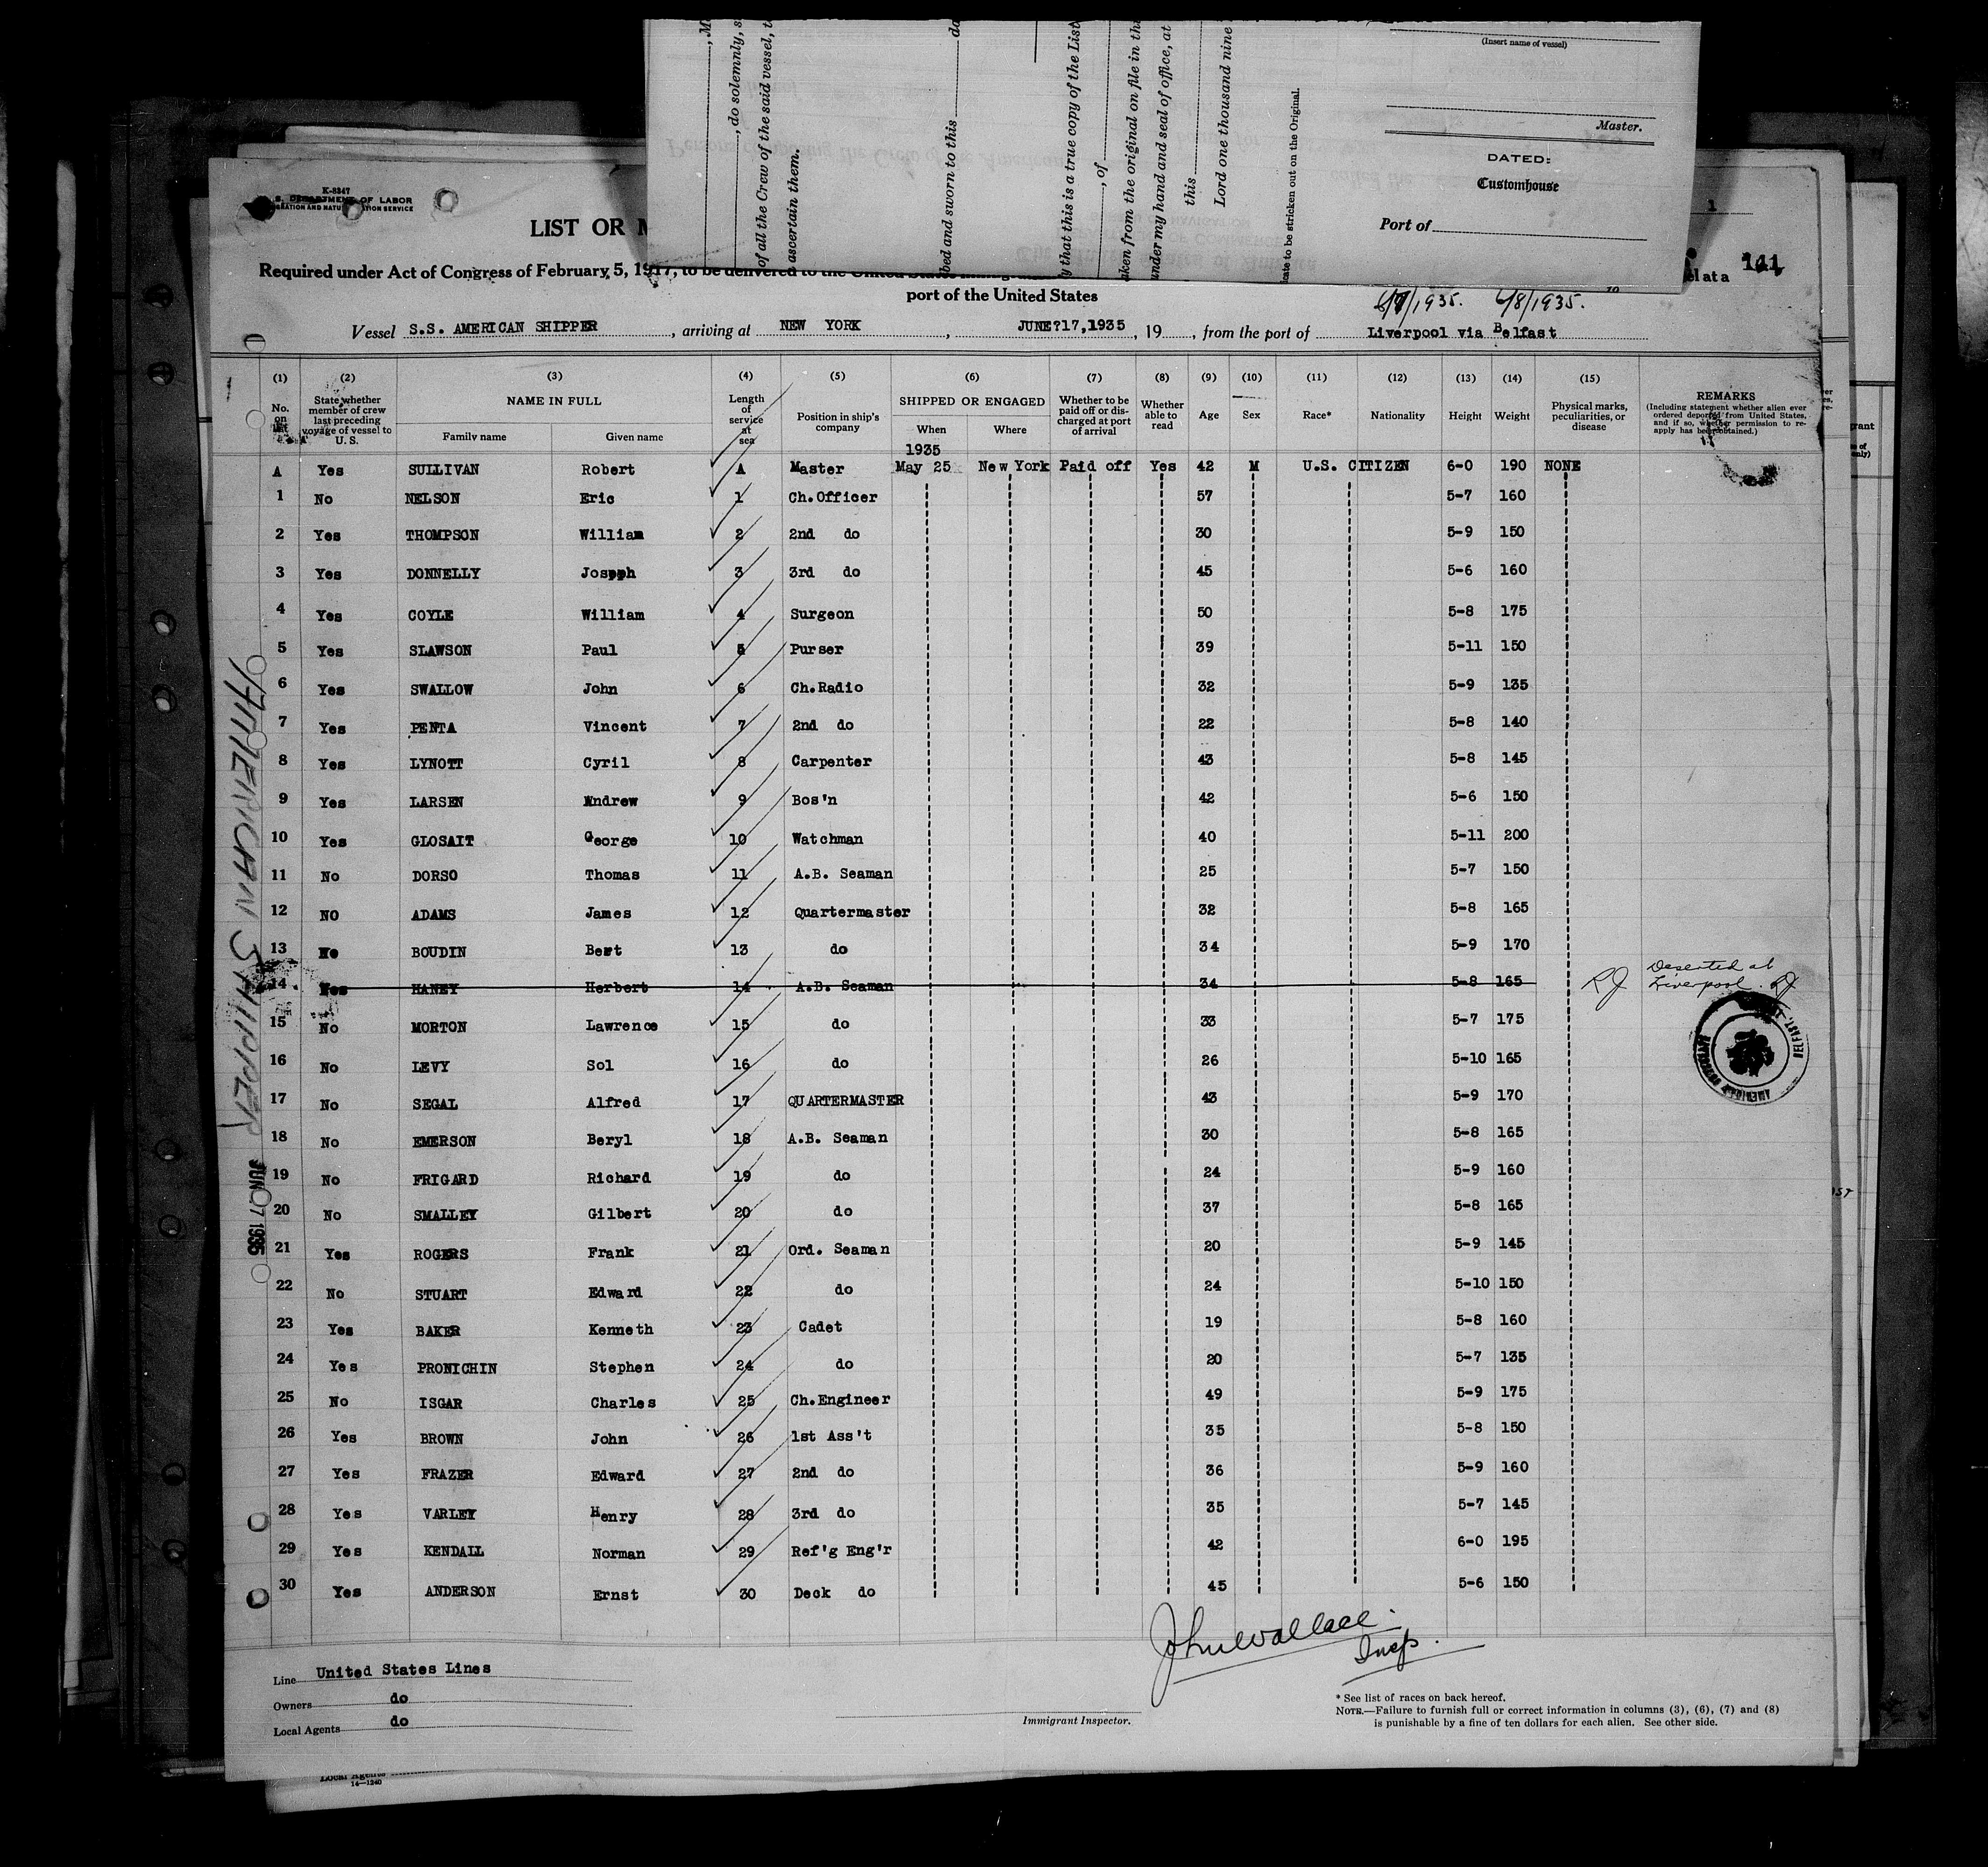 (Insert name of vessel)
Master.
DATED:
Customhouse
Port of
, do solemnly, s
of all the Crew of the said vessel, t
ascertain them.
bed and sworn to this
da
y that this is a true copy of the List
, of
aken from the original on file in thi
under my hand and seal of office, at
this
Lord one thousand nine
cate to be stricken out on the Original.
K-8347
S. DEPARTMENT OF LABOR
LIST OR M
1
Required under Act of Congress of February 5, 1917, to be delivered to the United States
el at a 141
port of the United States
6/7/1935. 6/8/1935.
Vessel S.S. AMERICAN SHIPPER, arriving at NEW YORK, JUNE?17,1935, 19, from the port of Liverpool via Belfast
(1) (2) (3) (4) (5) (6) (7) (8) (9) (10) (11) (12) (13) (14) (15)
No. on list
State whether member of crew last preceding voyage of vessel to U. S.
NAME IN FULL
Family name Given name
Length of service at sea
Position in ship's company
SHIPPED OR ENGAGED
When Where
Whether to be paid off or discharged at port of arrival
Whether able to read
Age Sex Race* Nationality Height Weight
Physical marks, peculiarities, or disease
REMARKS
(Including statement whether alien ever ordered deported from United States, and if so, whether permission to reapply has been obtained.)
1935
A Yes SULLIVAN Robert A Master May 25 New York Paid off Yes 42 M U.S. CITIZEN 6-0 190 NONE
1 No NELSON Eric 1 Ch.Officer 57 5-7 160
2 Yes THOMPSON William 2 2nd do 30 5-9 150
3 Yes DONNELLY Joseph 3 3rd do 45 5-6 160
4 Yes COYLE William 4 Surgeon 50 5-8 175
5 Yes SLAWSON Paul 5 Purser 39 5-11 150
6 Yes SWALLOW John 6 Ch.Radio 32 5-9 135
7 Yes PENTA Vincent 7 2nd do 22 5-8 140
8 Yes LYNOTT Cyril 8 Carpenter 43 5-8 145
9 Yes LARSEN Andrew 9 Bos'n 42 5-6 150
10 Yes GLOSAIT George 10 Watchman 40 5-11 200
11 No DORSO Thomas 11 A.B. Seaman 25 5-7 150
12 NO ADAMS James 12 Quartermaster 32 5-8 165
13 No BOUDIN Bert 13 do 34 5-9 170
14 Yes HANEY Herbert 14 A.B. Seaman 34 5-8 165 RJ Deserted at Liverpool. RJ
15 No MORTON Lawrence 15 do 33 5-7 175
16 No LEVY Sol 16 do 26 5-10 165
17 No SEGAL Alfred 17 QUARTERMASTER 43 5-9 170
18 No EMERSON Beryl 18 A.B. Seaman 30 5-8 165
19 No FRIGARD Richard 19 do 24 5-9 160
20 No SMALLEY Gilbert 20 do 37 5-8 165
21 Yes ROGERS Frank 21 Ord. Seaman 20 5-9 145
22 No STUART Edward 22 do 24 5-10 150
23 Yes BAKER Kenneth 23 Cadet 19 5-8 160
24 Yes PRONICHIN Stephen 24 do 20 5-7 135
25 No ISGAR Charles 25 Ch.Engineer 49 5-9 175
26 Yes BROWN John 26 1st Ass't 35 5-8 150
27 Yes FRAZER Edward 27 2nd do 36 5-9 160
28 Yes VARLEY Henry 28 3rd do 35 5-7 145
29 Yes KENDALL Norman 29 Ref'g Eng'r 42 6-0 195
30 Yes ANDERSON Ernst 30 Deck do 45 5-6 150
AMERICAN SHIPPER
JUN 17 1935
John Wallace
Insp.
Line United States Lines
Owners do
Local Agents do
Immigrant Inspector.
* See list of races on back hereof.
NOTE.—Failure to furnish full or correct information in columns (3), (6), (7) and (8)
is punishable by a fine of ten dollars for each alien. See other side.
Local Agents
14—1240